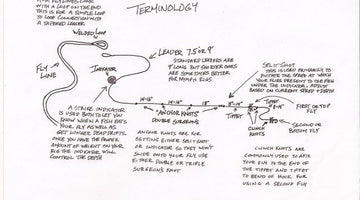 WITH A LOOP ON THE END
THIS IS FOR A SIMPLE LOOP
TO LOOP CONNECTION WITH
A TAPERED LEADER
TERMINOLOGY
WELDED LOOP
FLY
LINE
LEADER 7.5' OR 9'
STANDARD LEADERS ARE
9' LONG BUT SHORTER ONES
ARE SOMETIMES BETTER
FOR NYMPH RIGS
INDICATOR
SPLIT SHOT
THIS IS USED PRIMARILY TO
INDICATOR. ADJUST
BASED ON CURRENT SPEED & DEPTH
A STRIKE INDICATOR
IS USED BOTH TO LET YOU
KNOW WHEN A FISH EATS
YOUR FLY AS WELL AS
GET LONGER DEAD DRIFTS.
ONCE YOU HAVE THE PROPER
AMOUNT OF WEIGHT ON YOUR
RIG THE INDICATOR WILL
CONTROL THE DEPTH
18"
"ANCHOR KNOTS"
DOUBLE SURGEONS
ANCHOR KNOTS ARE FOR
SETTING EITHER SPLIT SHOT
OR INDICATOR SO THEY WON'T
SLIDE INTO YOUR FLY. USE
EITHER DOUBLE OR TRIPLE
SURGEON'S KNOT
TIPPET
TIPPET
FIRST OR TOP FLY
SECOND OR
BOTTOM FLY
CLINCH
KNOTS
CLINCH KNOTS ARE
COMMONLY USED TO AFFIX
YOUR FLY TO THE END OF
THE TIPPET AND TIPPET
TO BEND OF HOOK FOR
USING A SECOND FLY